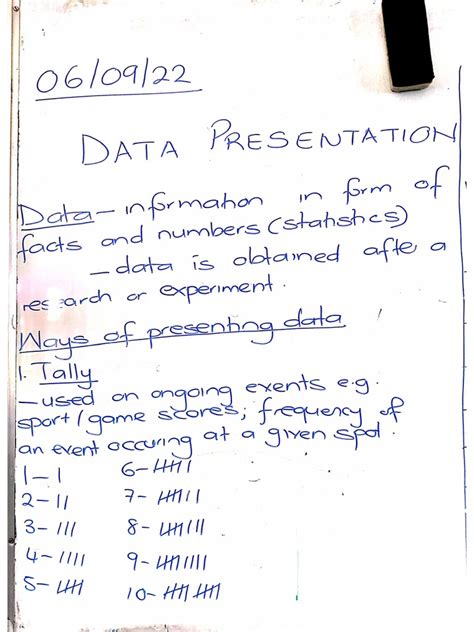 06/09/22
DATA PRESENTATION
Data - information in form of
facts and numbers (statistics)
- data is obtained after a
research or experiment.
Ways of presenting data
1. Tally
- used on ongoing exents e.g.
sport/game scores; frequency of
an event occuring at a given spot.
1 - I 6 - 卌 I
2 - II 7 - 卌 II
3 - III 8 - 卌 III
4 - IIII 9 - 卌 IIII
5 - 卌 10 - 卌 卌